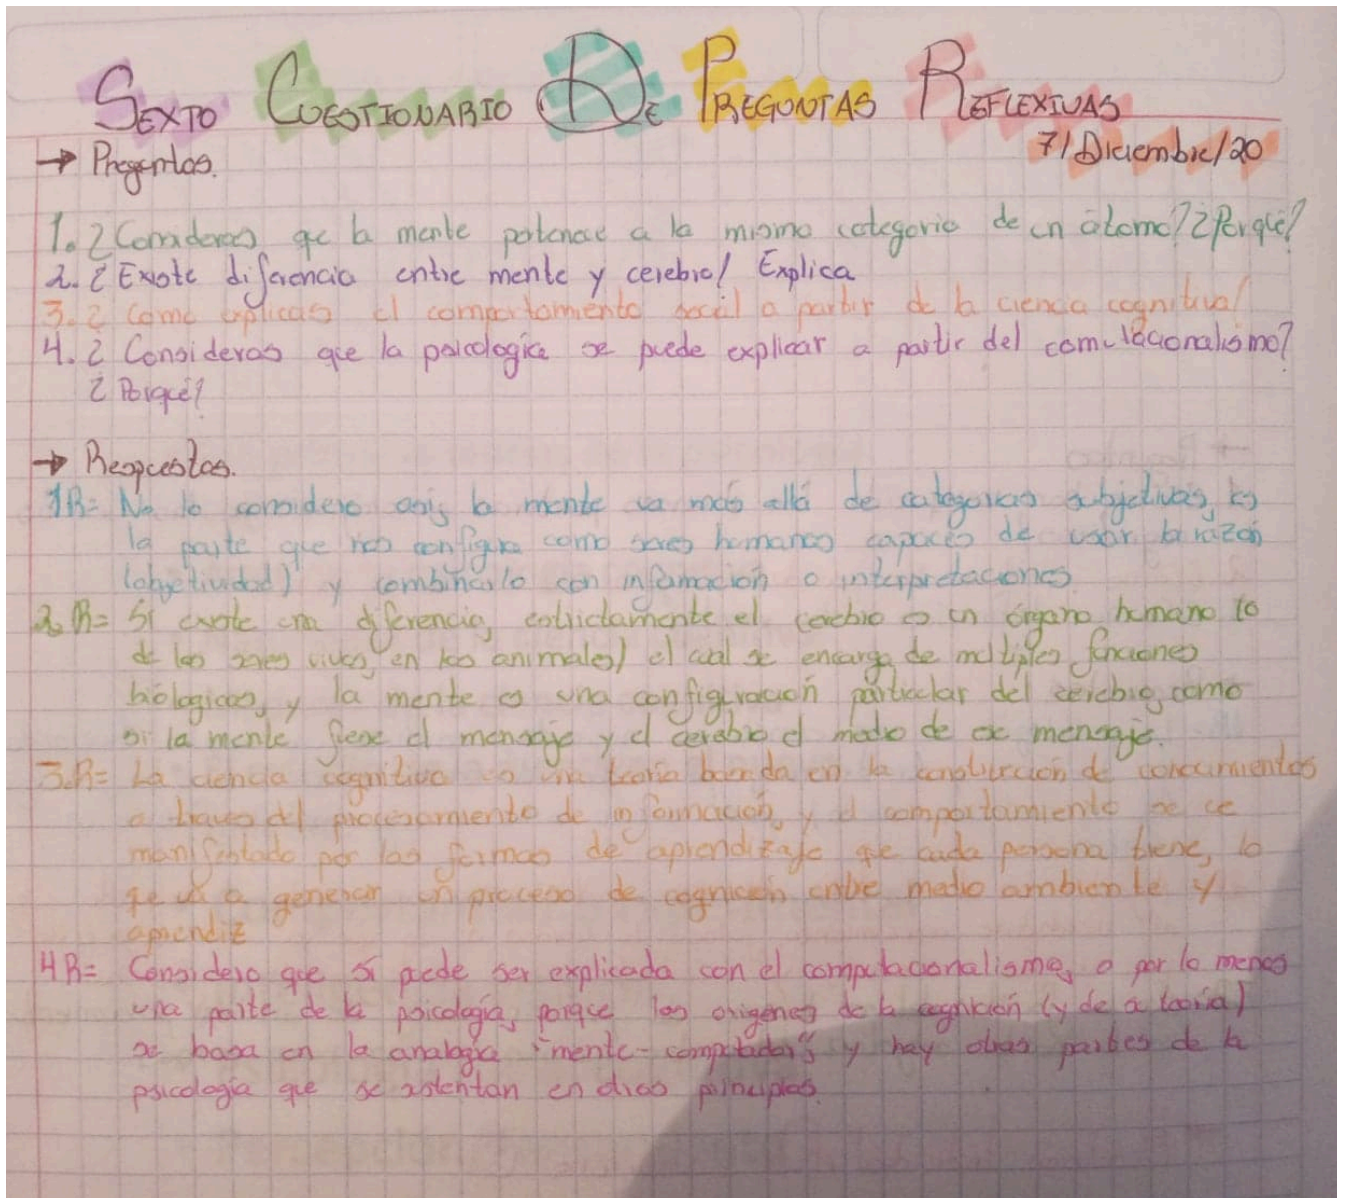 SEXTO CUESTIONARIO DE PREGUNTAS REFLEXIVAS
7/Diciembre/20
→ Preguntas.
1. ¿Consideras que la mente pertenece a la misma categoria de un átomo? ¿Porqué?
2. ¿Existe diferencia entre mente y cerebro? Explica
3. ¿Como explicas el comportamiento social a partir de la ciencia cognitiva?
4. ¿Consideras que la psicología se puede explicar a partir del comutacionalismo?
¿Porqué?
→ Respuestas.
1R= No lo considero así, la mente va más allá de categorías subjetivas, es
la parte que nos configura como seres humanos capaces de usar la razón
(objetividad) y combinarlo con información o interpretaciones.
2.R= Sí existe una diferencia, estrictamente el cerebro es un órgano humano (o
de los seres vivos, en los animales) el cual se encarga de multiples funciones
biologicas, y la mente es una configuración particular del cerebro, como
si la mente fuese el mensaje y el cerebro el medio de ese mensaje.
3.R= La ciencia cognitiva es una teoría basada en la construcción de conocimientos
a traves del procesamiento de información, y el comportamiento se ve
manifestado por las formas de aprendizaje que cada persona tiene, lo
que va a generar un proceso de cognición entre medio ambiente y
aprendiz
4R= Considero que sí puede ser explicada con el computacionalismo, o por lo menos
una parte de la psicología, porque los origenes de la cognición (y de la teoría)
se basa en la analogía "mente-computador" y hay otras partes de la
psicología que se asientan en principios.